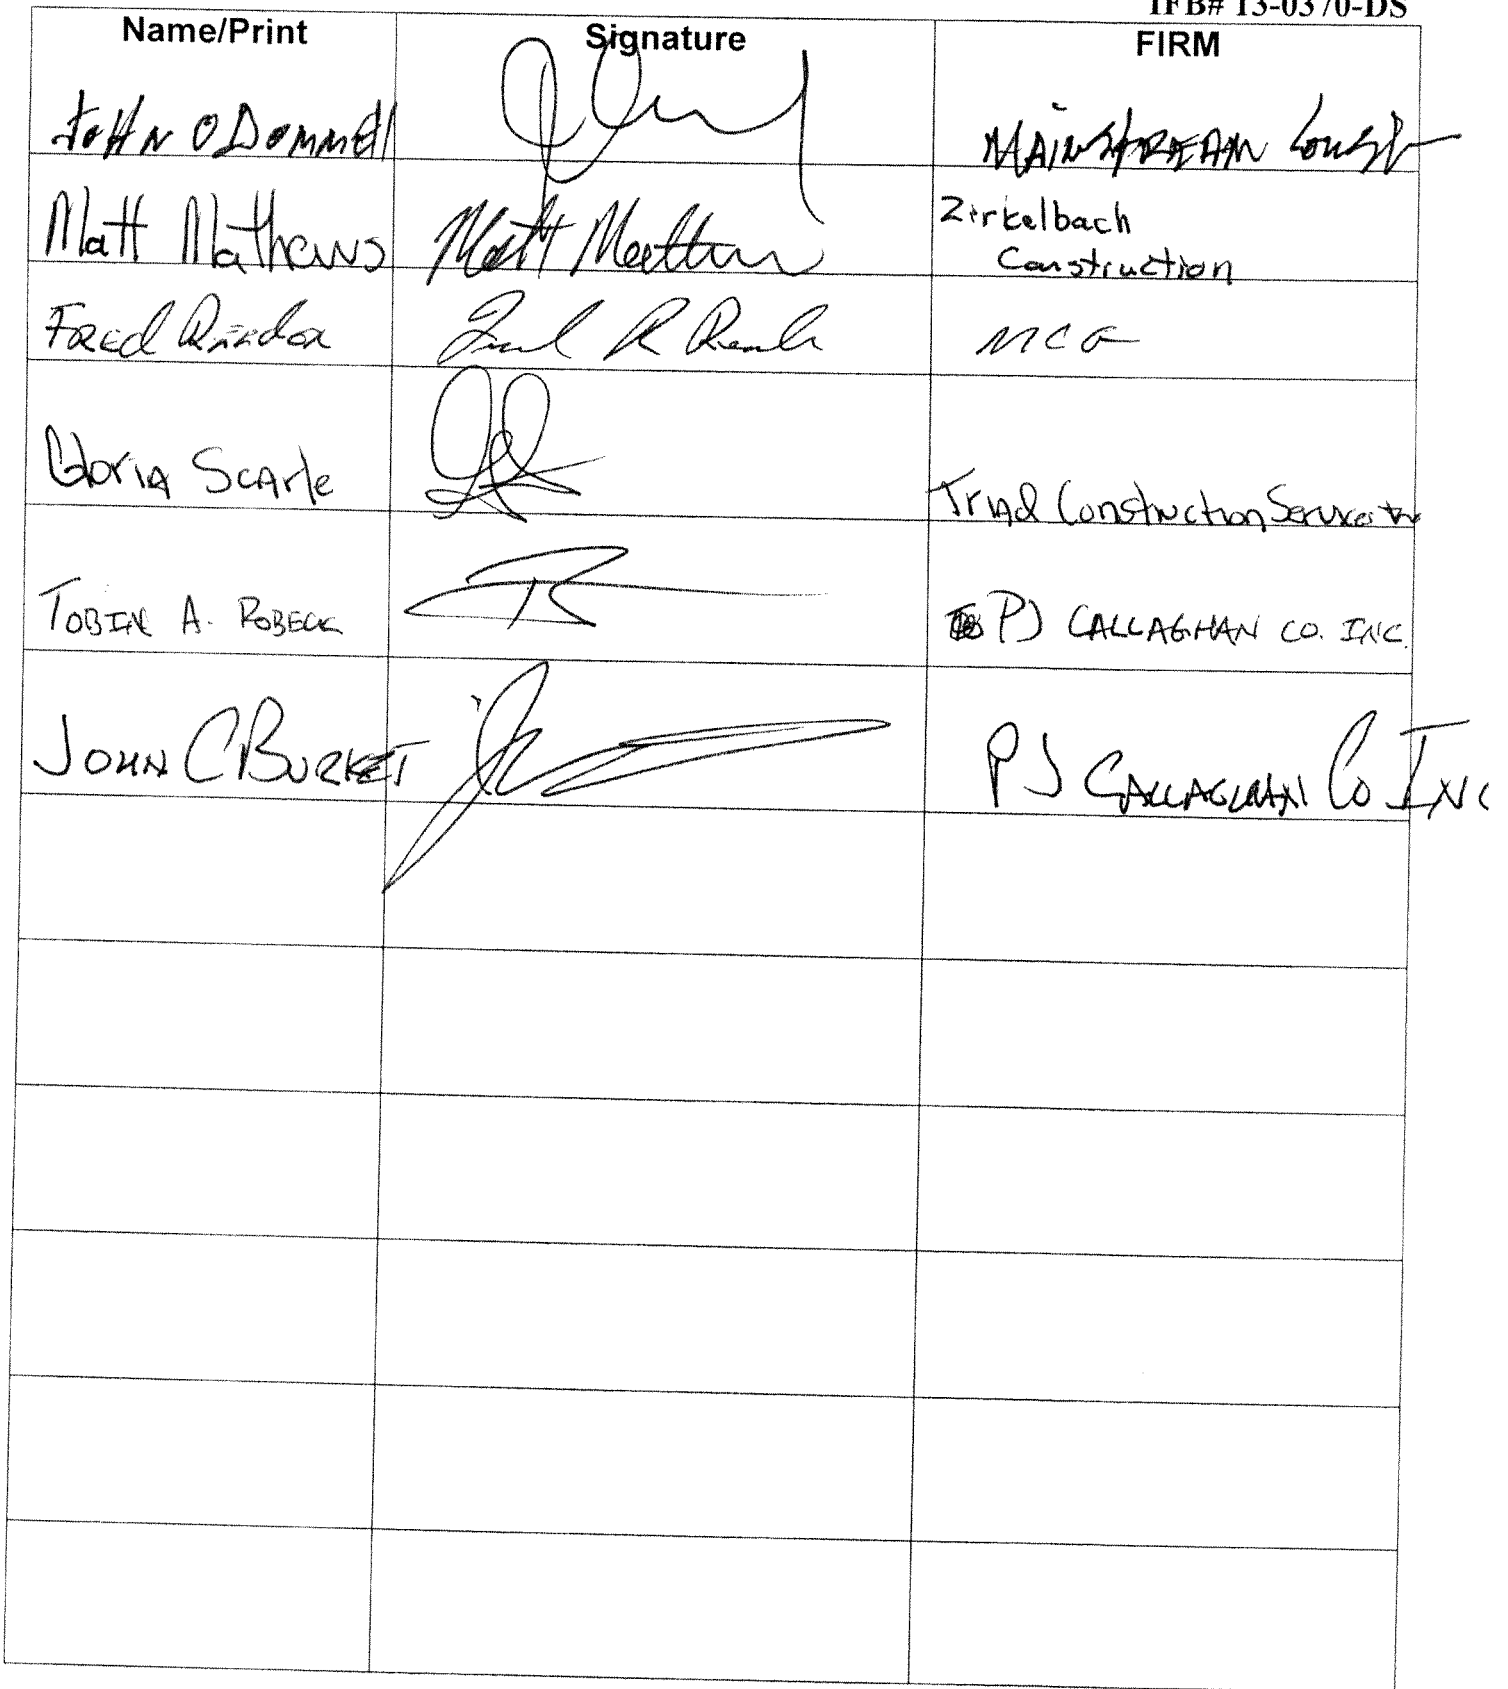 IFB# 13-0370-DS
Name/Print Signature FIRM
JOHN ODONNELL MAINSTREAM Const
Matt Mathews Matt Mathews Zirkelbach
Construction
Fred Reeder Fred R Reeder MCG
Gloria Scarle Triad Construction Services Inc
TOBIN A. ROBECK PJ CALLAGHAN CO. INC.
JOHN C BURKET PJ CALLAGHAN CO INC